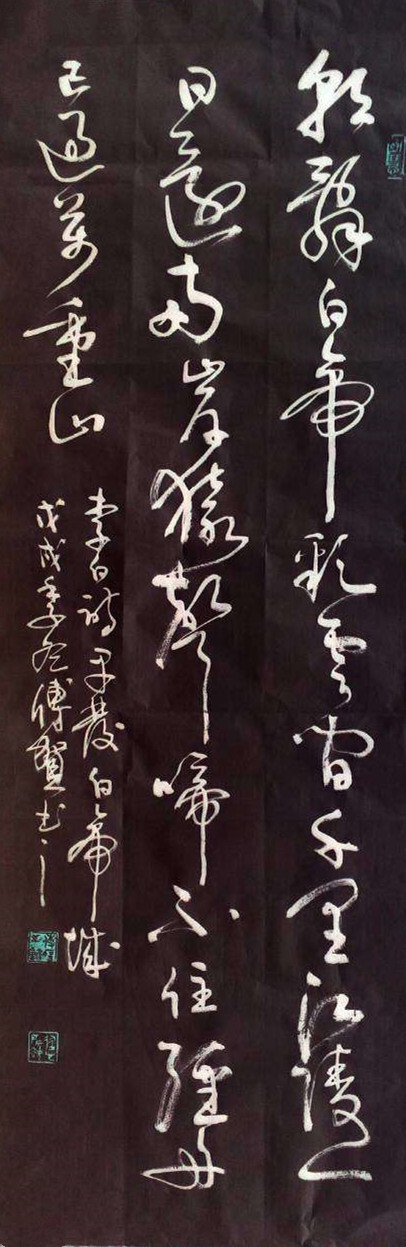 朝辭白帝彩雲間千里江陵一
日還兩岸猿聲啼不住輕舟
已過萬重山
李白詩早發白帝城
戊戌季冬傅賢书